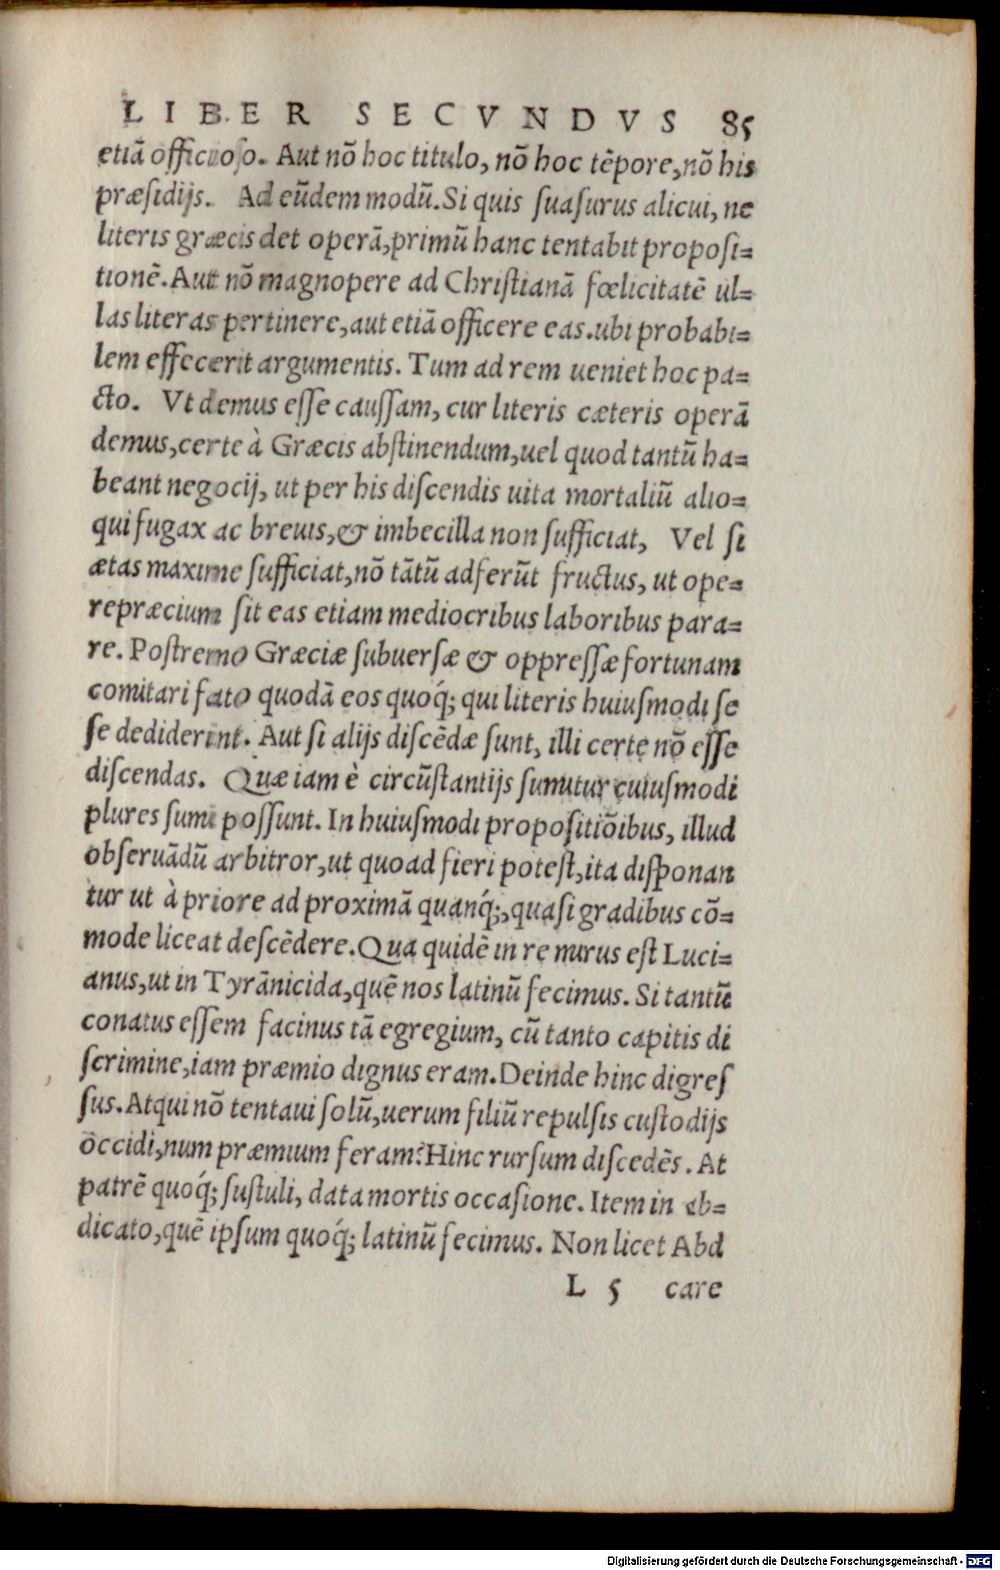 LIBER SECVNDVS 85
etiā officioſo. Aut nō hoc titulo, nō hoc tēpore, nō his
præſidijs. Ad eūdem modū. Si quis ſuaſurus alicui, ne
literis græcis det operā, primū hanc tentabit propoſi=
tionē. Aut nō magnopere ad Chriſtianā fœlicitatē ul=
las literas pertinere, aut etiā officere eas. ubi probabi=
lem effecerit argumentis. Tum ad rem ueniet hoc pa=
cto. Vt demus eſſe cauſſam, cur literis cæteris operā
demus, certe à Græcis abſtinendum, uel quod tantū ha=
beant negocij, ut per his diſcendis uita mortaliū alio=
qui fugax ac breuis, & imbecilla non ſufficiat, Vel ſi
ætas maxime ſufficiat, nō tātū adferūt fructus, ut ope=
repræcium ſit eas etiam mediocribus laboribus para=
re. Poſtremo Græciæ ſubuerſæ & oppreſſæ fortunam
comitari fato quodā eos quoq́; qui literis huiuſmodi ſe
ſe dediderint. Aut ſi alijs diſcēdæ ſunt, illi certe nō eſſe
diſcendas. Quæ iam è circūſtantijs ſumitur cuiuſmodi
plures ſumi poſſunt. In huiuſmodi propoſitiōibus, illud
obſeruādū arbitror, ut quoad fieri poteſt, ita diſponan
tur ut à priore ad proximā quanq́;, quaſi gradibus cō=
mode liceat deſcēdere. Qua quidē in re mirus eſt Luci=
anus, ut in Tyrānicida, quē nos latinū fecimus. Si tantū
conatus eſſem facinus tā egregium, cū tanto capitis di
ſcrimine, iam præmio dignus eram. Deinde hinc digreſ
ſus. Atqui nō tentaui ſolū, uerum filiū repulſis cuſtodijs
occidi, num præmium feram? Hinc rurſum diſcedēs. At
patrē quoq́; ſuſtuli, data mortis occaſione. Item in ab=
dicato, quē ipſum quoq́; latinū fecimus. Non licet Abd
L 5 care
Digitalisierung gefördert durch die Deutsche Forschungsgemeinschaft - DFG